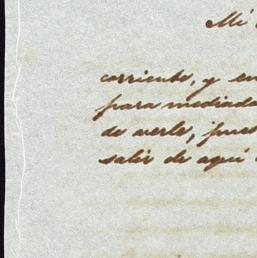 Mi
corriente, y en
para mediada
de verle, pues
salir de aquí